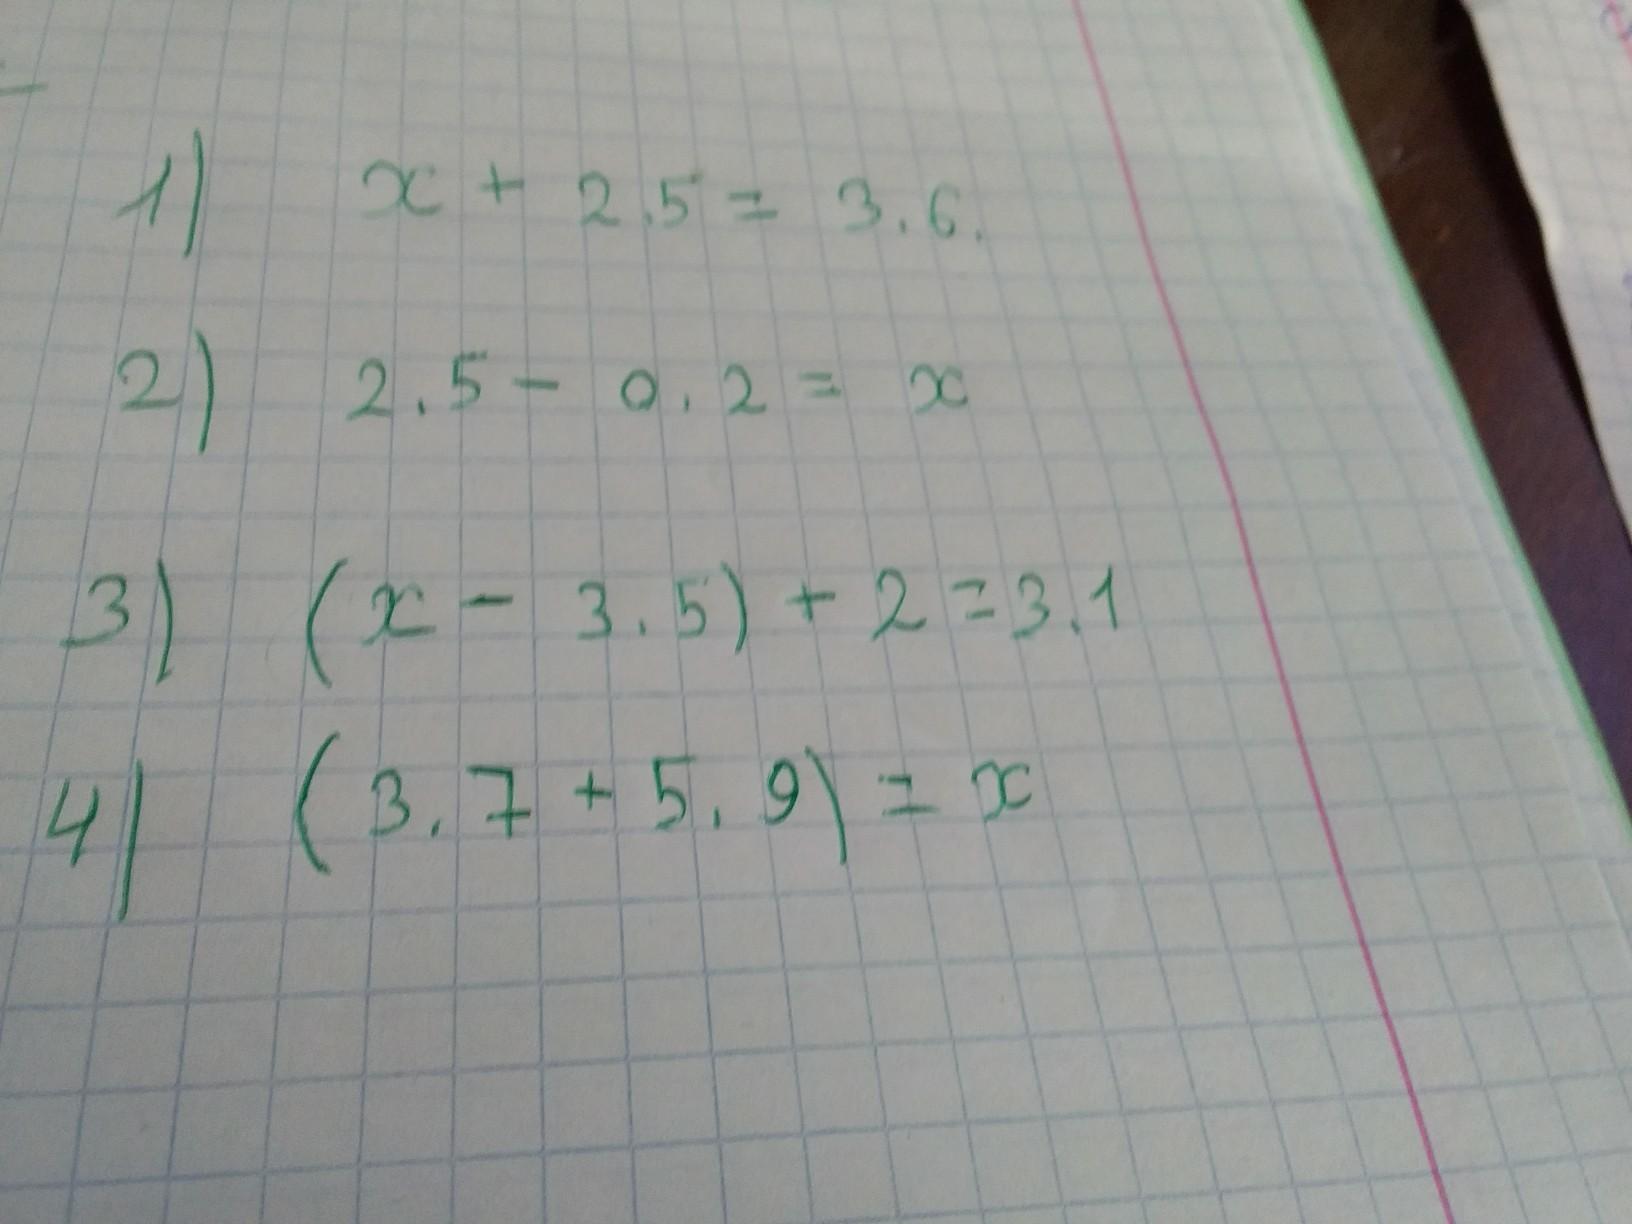 1) x + 2.5 = 3.6.
2) 2.5 - 0.2 = x
3) (x - 3.5) + 2 = 3.1
4) (3.7 + 5.9) = x